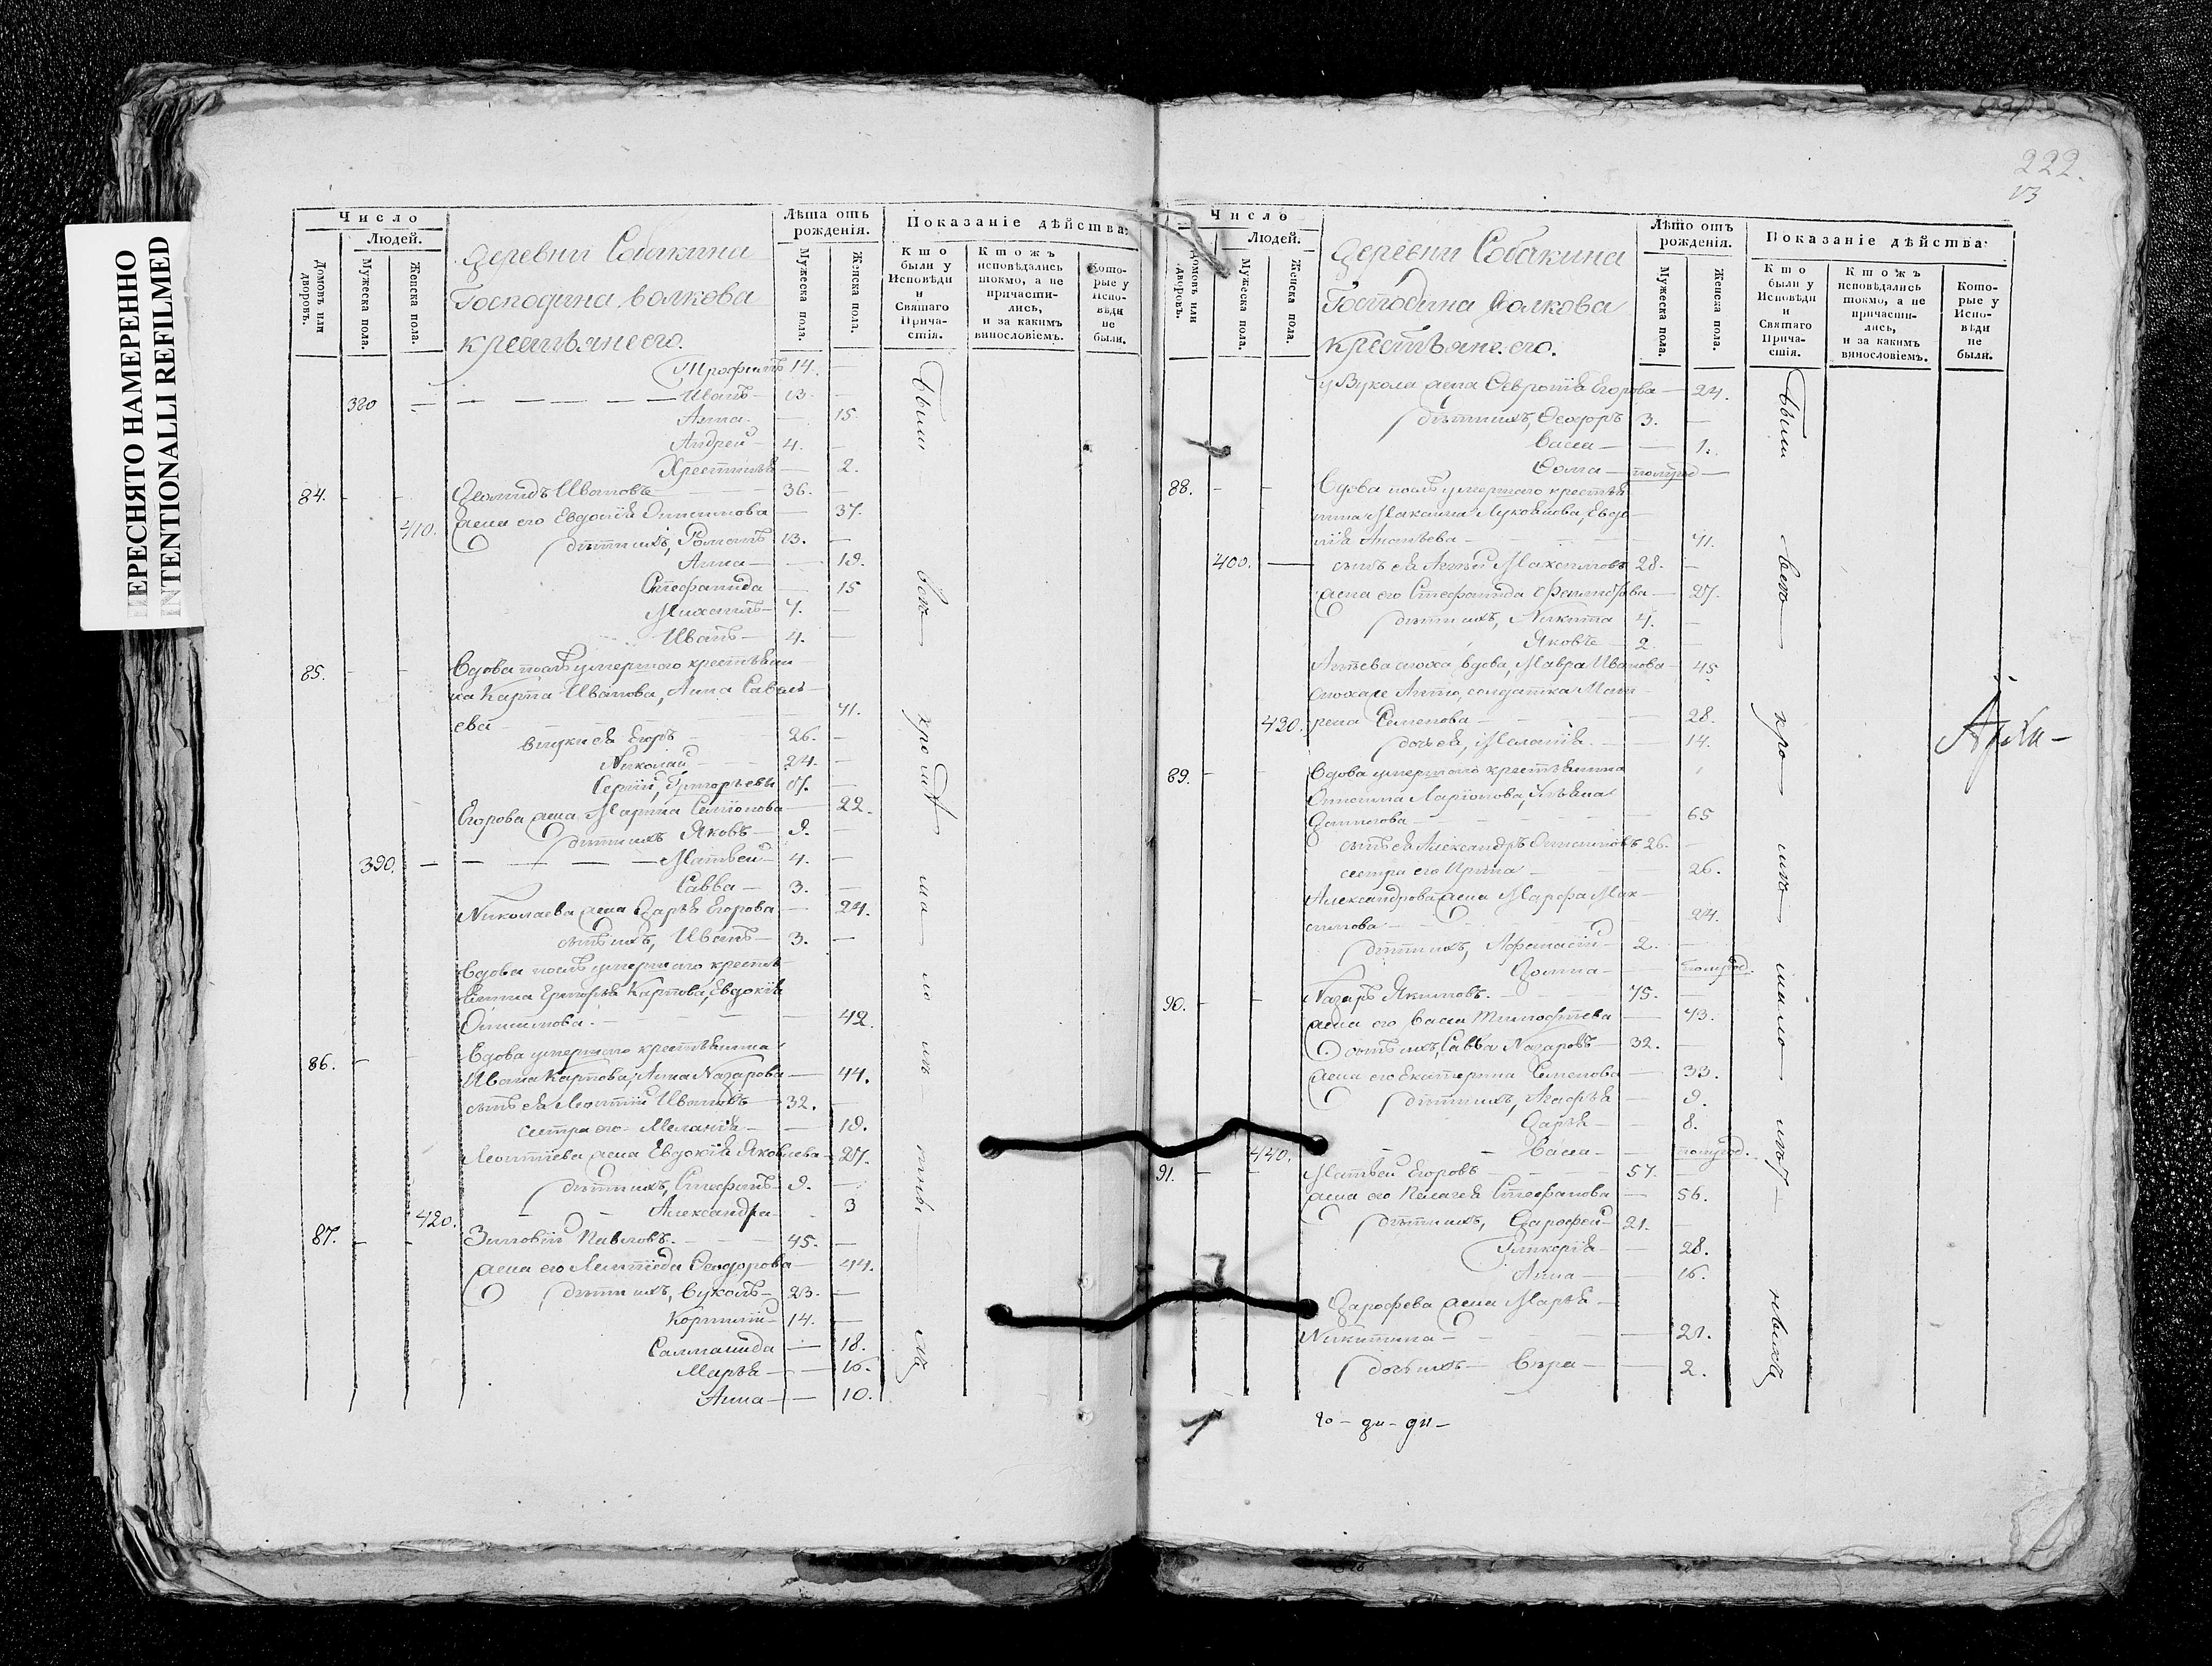 ПЕРЕСНЯТО НАМЕРЕННО
INTENTIONALLI REFILMED
Число
Людей.
Домовъ или дворовъ.
Мужеска пола.
Женска пола.
деревни Собакина
Господина Волкова
крестьяне его.
Лѣта отъ рожденія.
Мужеска пола.
Женска пола.
Показаніе дѣйства:
Кто были у Исповѣди и Святаго Причастія.
Ктожъ исповѣдались токмо, а не причастились, и за какимъ винословіемъ.
Которые у Исповѣди не были.
Трофимъ 14.
380 Иванъ 13.
Анна 15
Андрей 4.
Хрестинья 2.
84. Иванов 36.
410. жена его Евдокія Онисимова 37.
дѣти ихъ, Романъ 13.
Анна 19.
Стефанида 15
Михаилъ 7.
Иванъ 4.
85. Вдова послѣ умершаго крестьяни
на Карпа Иванова, Анна Савель
ева 71.
внуки ея Егоръ 26.
Николай 24.
Сергій, Григорьевы
Егорова жена Марина Семіонова 22.
дѣти ихъ Яковъ 9.
390. Матвей 4.
Савва 3.
Николаева жена Дарья Егорова 24.
сынъ ихъ, Иванъ 3.
Вдова послѣ умершаго кресть
янина Григорья Карпова, Евдокія
Онисимова. 42.
86. Вдова умершаго крестьянина
Ивана Карпова, Анна Назарова 44.
сынъ ея Леонтій Ивановъ 32.
сестра его Меланія 19.
Леонтіева жена Евдокія Яковлева 27.
дѣти ихъ, Стефанъ 9.
420. Александра 3
87. Зиновій Павловъ. 45.
жена его Ѳеодорова 44.
дѣти ихъ, Вуколъ 23.
Корнилій 14.
Саламанида 18.
Марья 16.
Анна 10.
были
всѣ
222.
13
Число
Людей.
Домовъ или дворовъ.
Мужеска пола.
Женска пола.
деревни Собакина
Господина Волкова
крестьяне его.
Лѣто отъ рожденія.
Мужеска пола.
Женска пола.
Показаніе дѣйства:
Кто были у Исповѣди и Святаго Причастія.
Ктожъ исповѣдались токмо, а не причастились, и за какимъ винословіемъ.
Которые у Исповѣди не были.
у Вукола жена Ѳевронія Егорова 24.
дѣти ихъ, Ѳеодоръ 3.
Васса 1.
Ѳома полугод
88. Вдова послѣ умершаго крестья
нина Максима Лукоянова, Евдо
кія Ананьева 71.
400. сынъ ея Максимовъ 28.
жена его Стефанида 27.
дѣти ихъ, Никита 4.
Яковъ 2.
сноха вдова, Мавра Иванова 45
солдатка Мат
430. рена Семенова 28.
дочь ея, Маланія. 14.
89. Вдова умершаго крестьянина
Онисима Ларіонова, Ульяна
Данилова 65
сынъ ея Александръ Онисимовъ 26.
сестра его Ирина 26.
Александрова жена Марфа Мак
симова 24.
дѣти ихъ, Афанасій 2.
Домна полугод.
90. Назаръ Якимовъ. 75.
жена его Васса Тимофѣева 73.
сынъ ихъ, Савва Назаровъ 32.
жена его Екатерина Семенова 33.
дѣти ихъ, Агафья 9.
Дарья 8.
440. Васса полугод.
91. Матвей Егоровъ 57.
жена его Пелагея Стефанова 56.
дѣти ихъ, Дарофей 21.
Гликерія 28.
Анна 16.
Дарофева жена Марья
Никитина 21.
дочь ихъ Вѣра 2.
были
всѣ